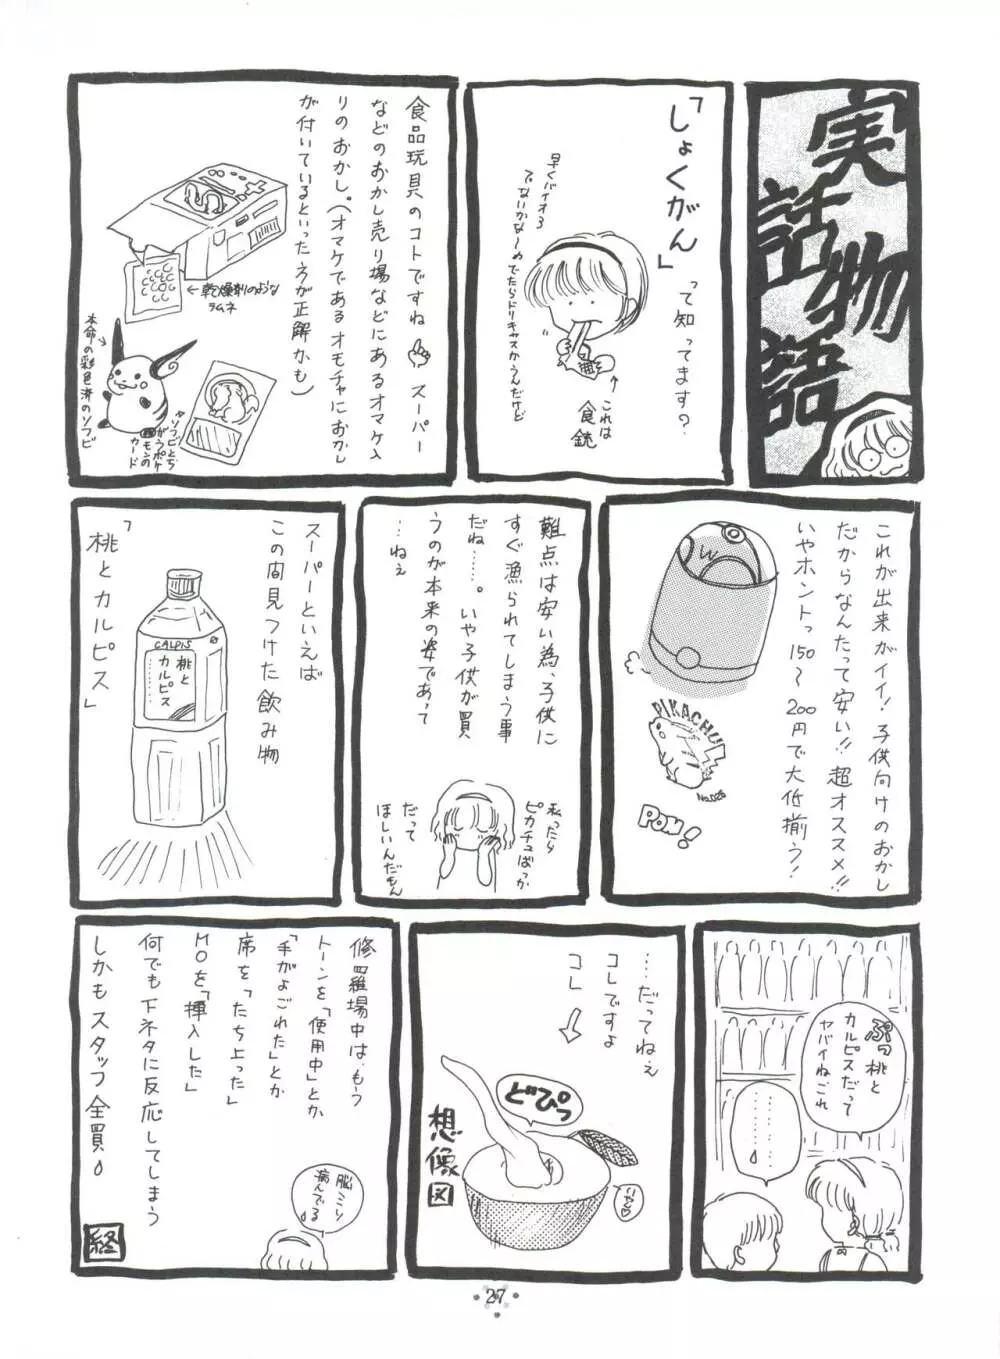 実話物語
「しょくがん」
って知ってます?
早くバイオ3
でないかなーめでたらドリキャスかうんだけど
これは
食銃
食品玩具のコトですね スーパー
などのおかし売り場などにあるオマケ入
りのおかし。(オマケであるオモチャにおかし
が付いているといった方が正解かも)
←乾燥剤のような
ラムネ
本命の彩色済のソフビ
ソフビとち
がうポケ
モンの
カード
これが出来がイイ!子供向けのおかし
だからなんたって安い!!超オススメ!!
いやホントっ150〜200円で大低揃う!
W
PIKACHU
No.025
POW!
難点は安い為、子供に
すぐ漁られてしまう事
だね……。いや子供が買
うのが本来の姿であって
…ねぇ
私ったら
ピカチュばっか
だって
ほしいんだもん
スーパーといえば
この間見つけた飲み物
「桃とカルピス」
CALPIS
桃と
カルピス
ぷっ桃と
カルピスだって
ヤバイねごれ
………
………
……だってねぇ
コレですよ
コレ→
どぴっ
想像図
修羅場中は、もう
トーンを「使用中」とか
「手がよごれた」とか
席を「たち上った」
MOを「挿入した」
何でも下ネタに反応してしまう
しかもスタッフ全買
脳ミソ
病んでる
終
27